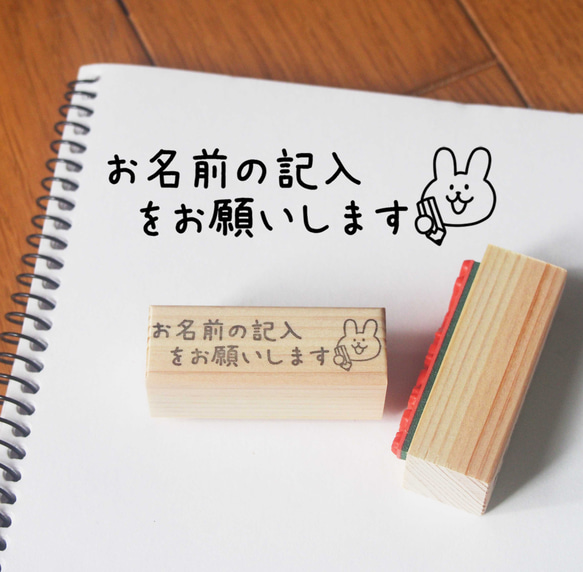 お名前の記入
をお願いします
お名前の記入
をお願いします